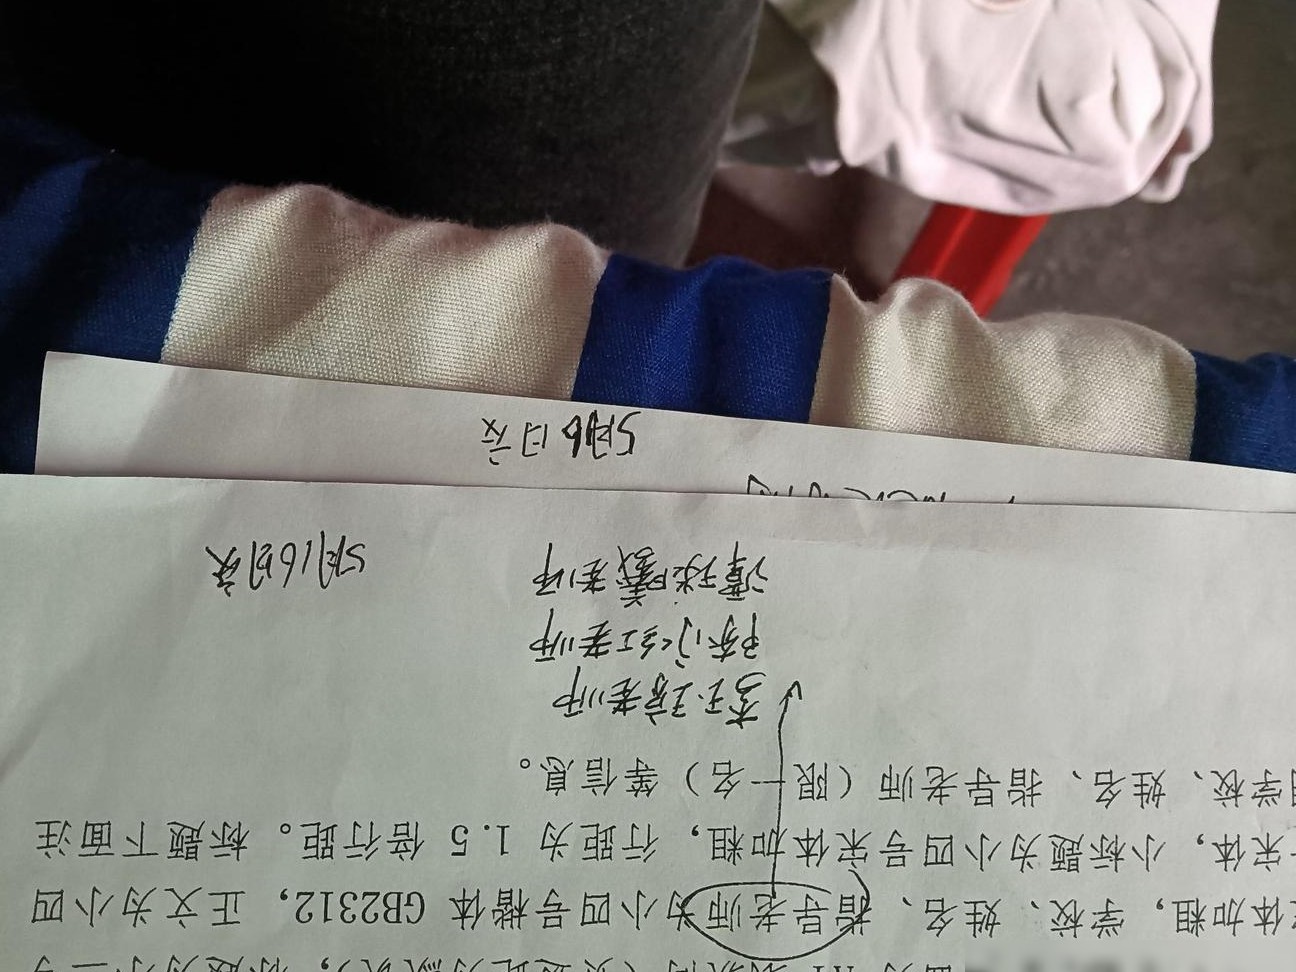 页边距为默认),标题为小二号
体加粗,学校、姓名、指导老师为小四号楷体 GB2312,正文为小四
宋体,小标题为小四号宋体加粗,行距为 1.5 倍行距。标题下面注
明学校、姓名、指导老师(限一名)等信息。
老师
陈永红老师
老师 5月16日交
5月6日交